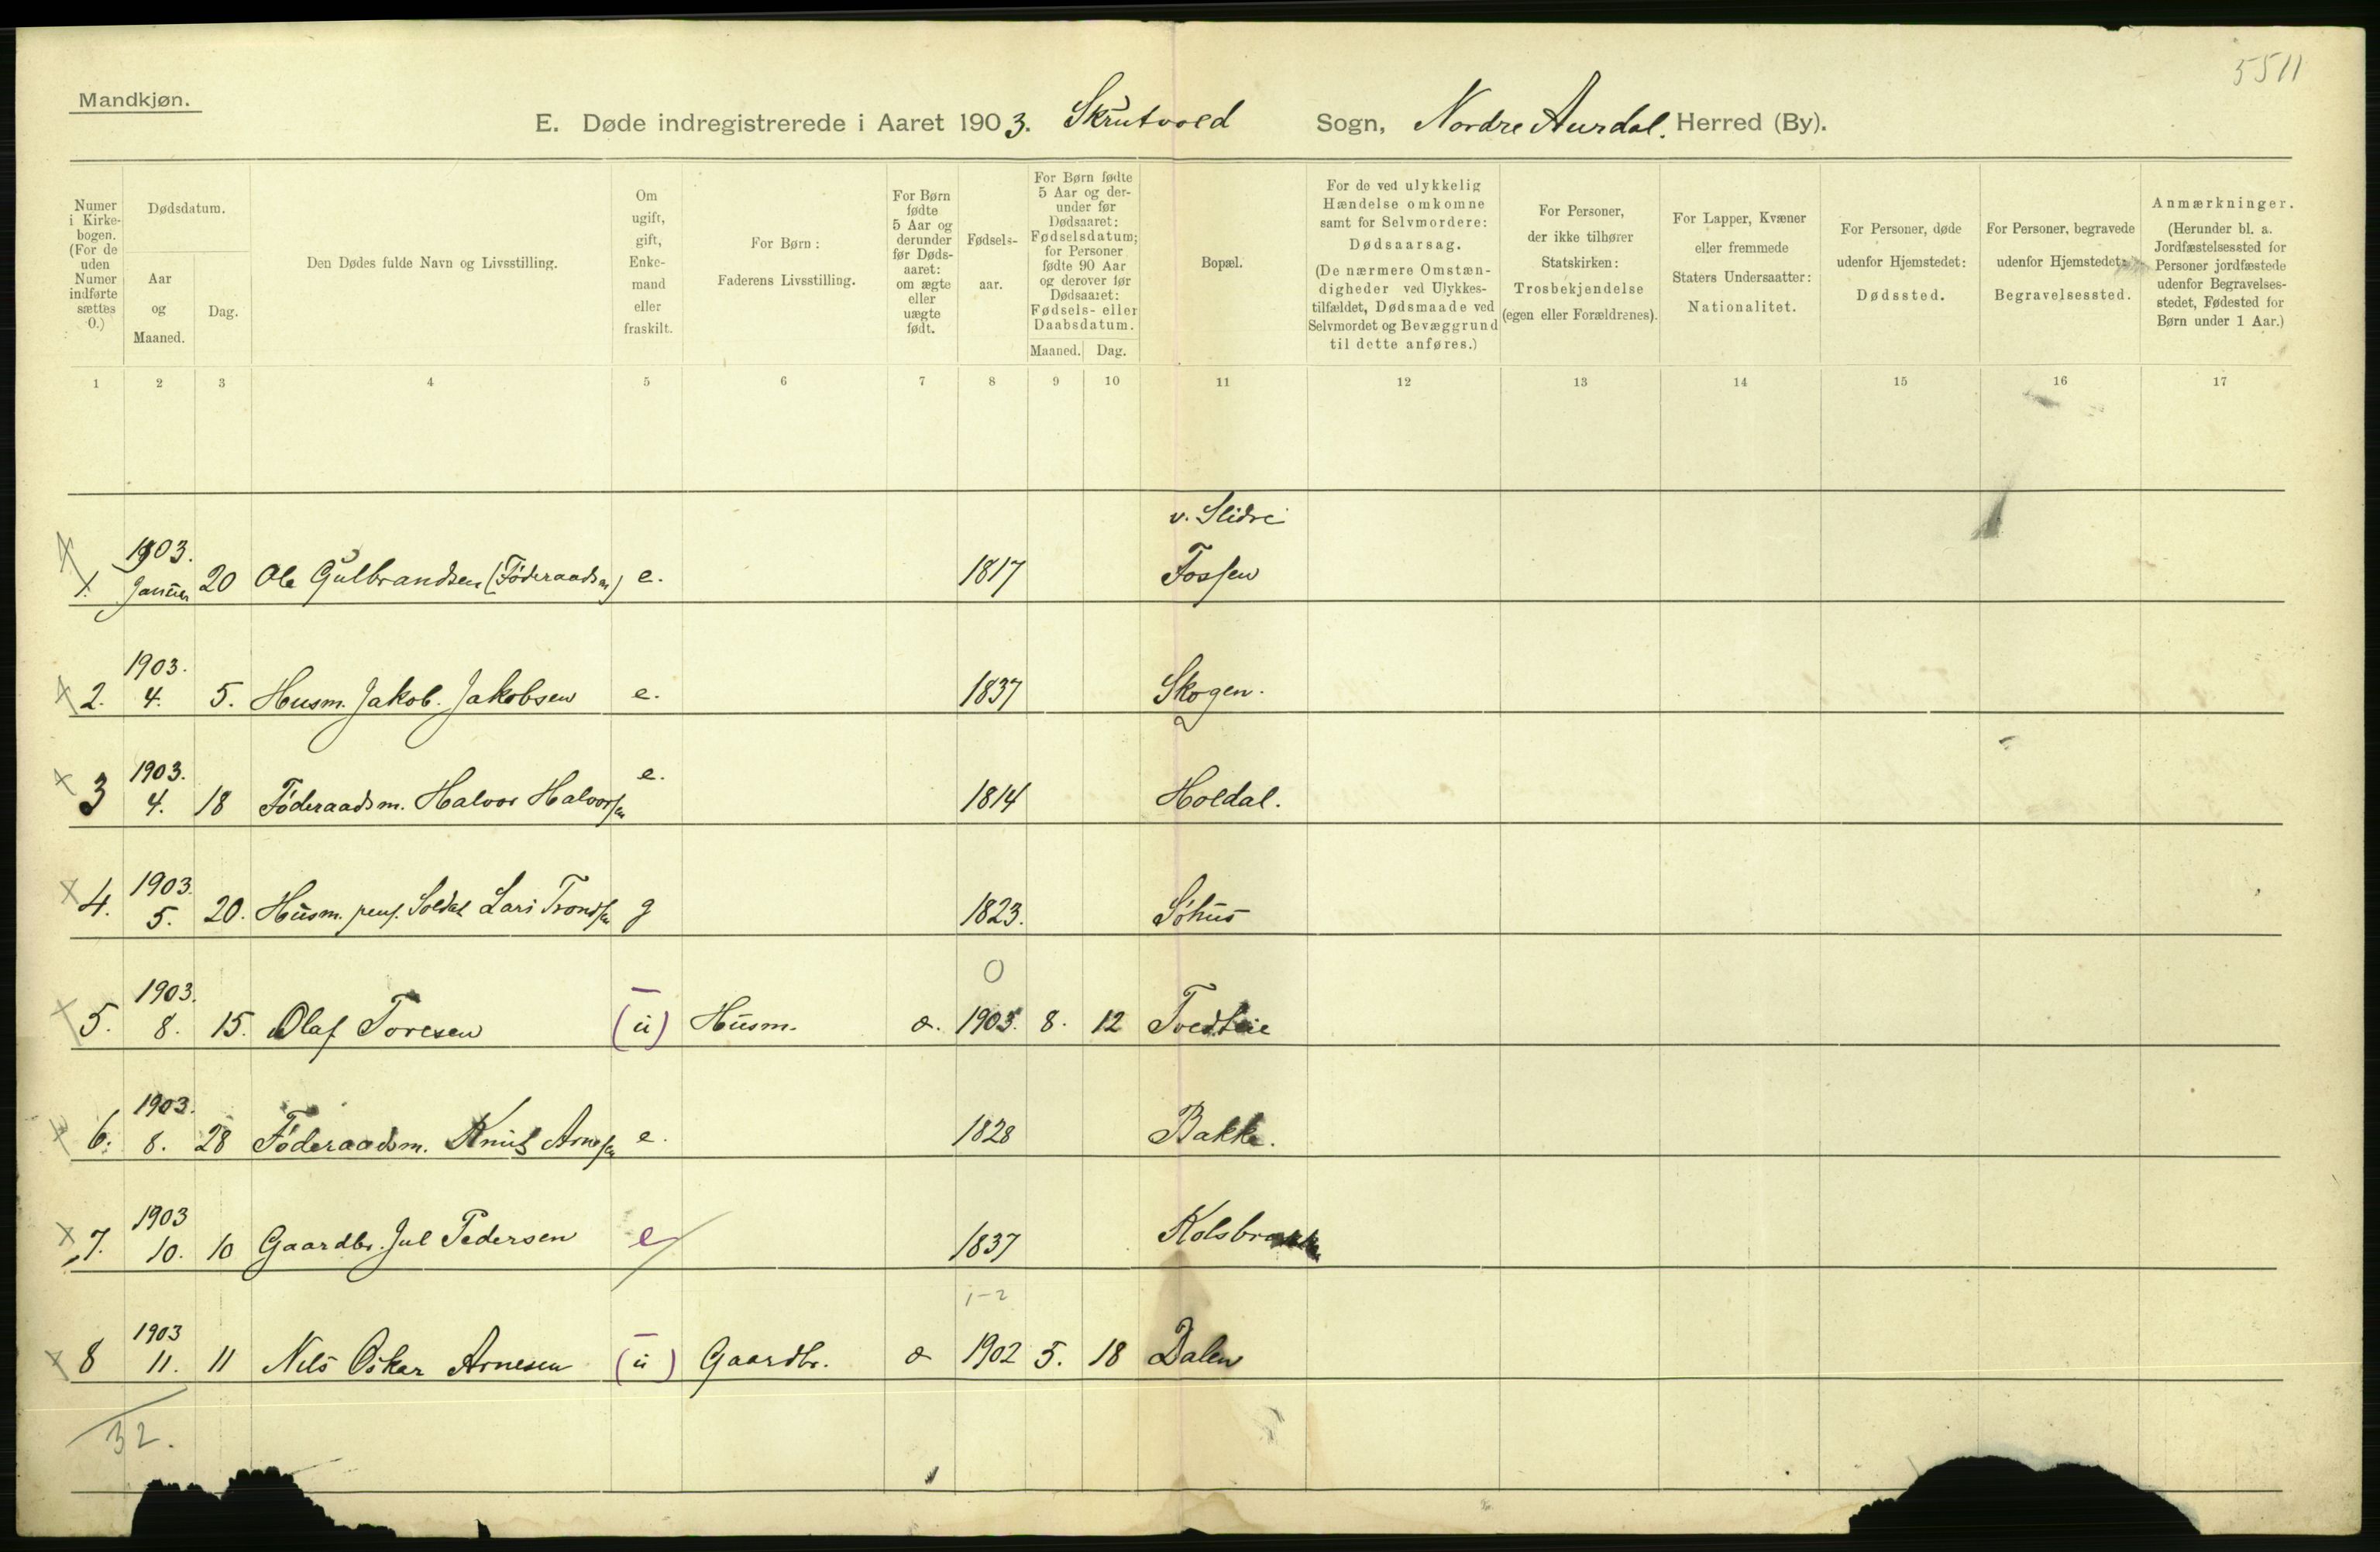 5511
Mandkjøn.
E. Døde indregistrerede i Aaret 1903. Skrutvold Sogn, Nordre Aurdal. Herred (By).
Numer i Kirke-bogen. (For de uden Numer indførte sættes 0.)
Dødsdatum.
Aar og Maaned.
Dag.
Den Dødes fulde Navn og Livsstilling.
Om ugift, gift, Enke-mand eller fraskilt.
For Børn: Faderens Livsstilling.
For Børn fødte 5 Aar og derunder før Døds-aaret: om ægte eller uægte født.
Fødsels-aar.
For Børn fødte 5 Aar og der-under før Dødsaaret: Fødselsdatum; for Personer fødte 90 Aar og derover før Dødsaaret: Fødsels- eller Daabsdatum.
Maaned. Dag.
Bopæl.
For de ved ulykkelig Hændelse omkomne samt for Selvmordere: Dødsaarsag. (De nærmere Omstæn-digheder ved Ulykkes-tilfældet, Dødsmaade ved Selvmordet og Bevæggrund til dette anføres.)
For Personer, der ikke tilhører Statskirken: Trosbekjendelse (egen eller Forældrenes).
For Lapper, Kvæner eller fremmede Staters Undersaatter: Nationalitet.
For Personer, døde udenfor Hjemstedet: Dødssted.
For Personer, begravede udenfor Hjemstedet: Begravelsessted.
Anmærkninger. (Herunder bl. a. Jordfæstelsessted for Personer jordfæstede udenfor Begravelses-stedet, Fødested for Børn under 1 Aar.)
1 2 3 4 5 6 7 8 9 10 11 12 13 14 15 16 17
1903. v. Slidre
1. Januar 20 Ole Gulbrandsen (Føderaadsm) e. 1817 Fossen
1903.
2. 4. 5. Husm. Jakob. Jakobsen e. 1837 Skogen.
1903.
3 4. 18 Føderaadsm. Halvor Halvorsen e. 1814 Holdal.
1903.
4. 5. 20. Husm. pens. Soldat Lars Trondsen g 1823. Søhus
1903. 0
5. 8. 15. Olaf Toresen (u) Husm. æ. 1903. 8. 12 Tvedteie
1903.
6. 8. 28 Føderaadsm. Knut Arnesen e. 1828 Bakke.
1903
7. 10. 10 Gaardbr. Jul Pedersen e 1837 Kolsbrække
1903 1-2
8 11. 11 Nils Oskar Arnesen (u) Gaardbr. æ 1902 5. 18 Dalen
32.